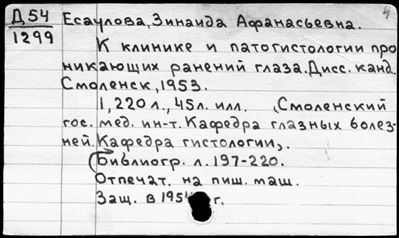 4
Д54 Есаулова, Зинаида Афанасьевна.
1299
К клинике и патогистологии про
никающих ранений глаза. Дисс. канд.
Смоленск, 1953.
1, 220 л., 45 л. илл. (Смоленский
гос. мед. ин-т. Кафедра глазных болез-
ней. Кафедра гистологии).
Библиогр. л. 197-220.
Отпечат. на пиш. маш.
Защ. в 1954 г.